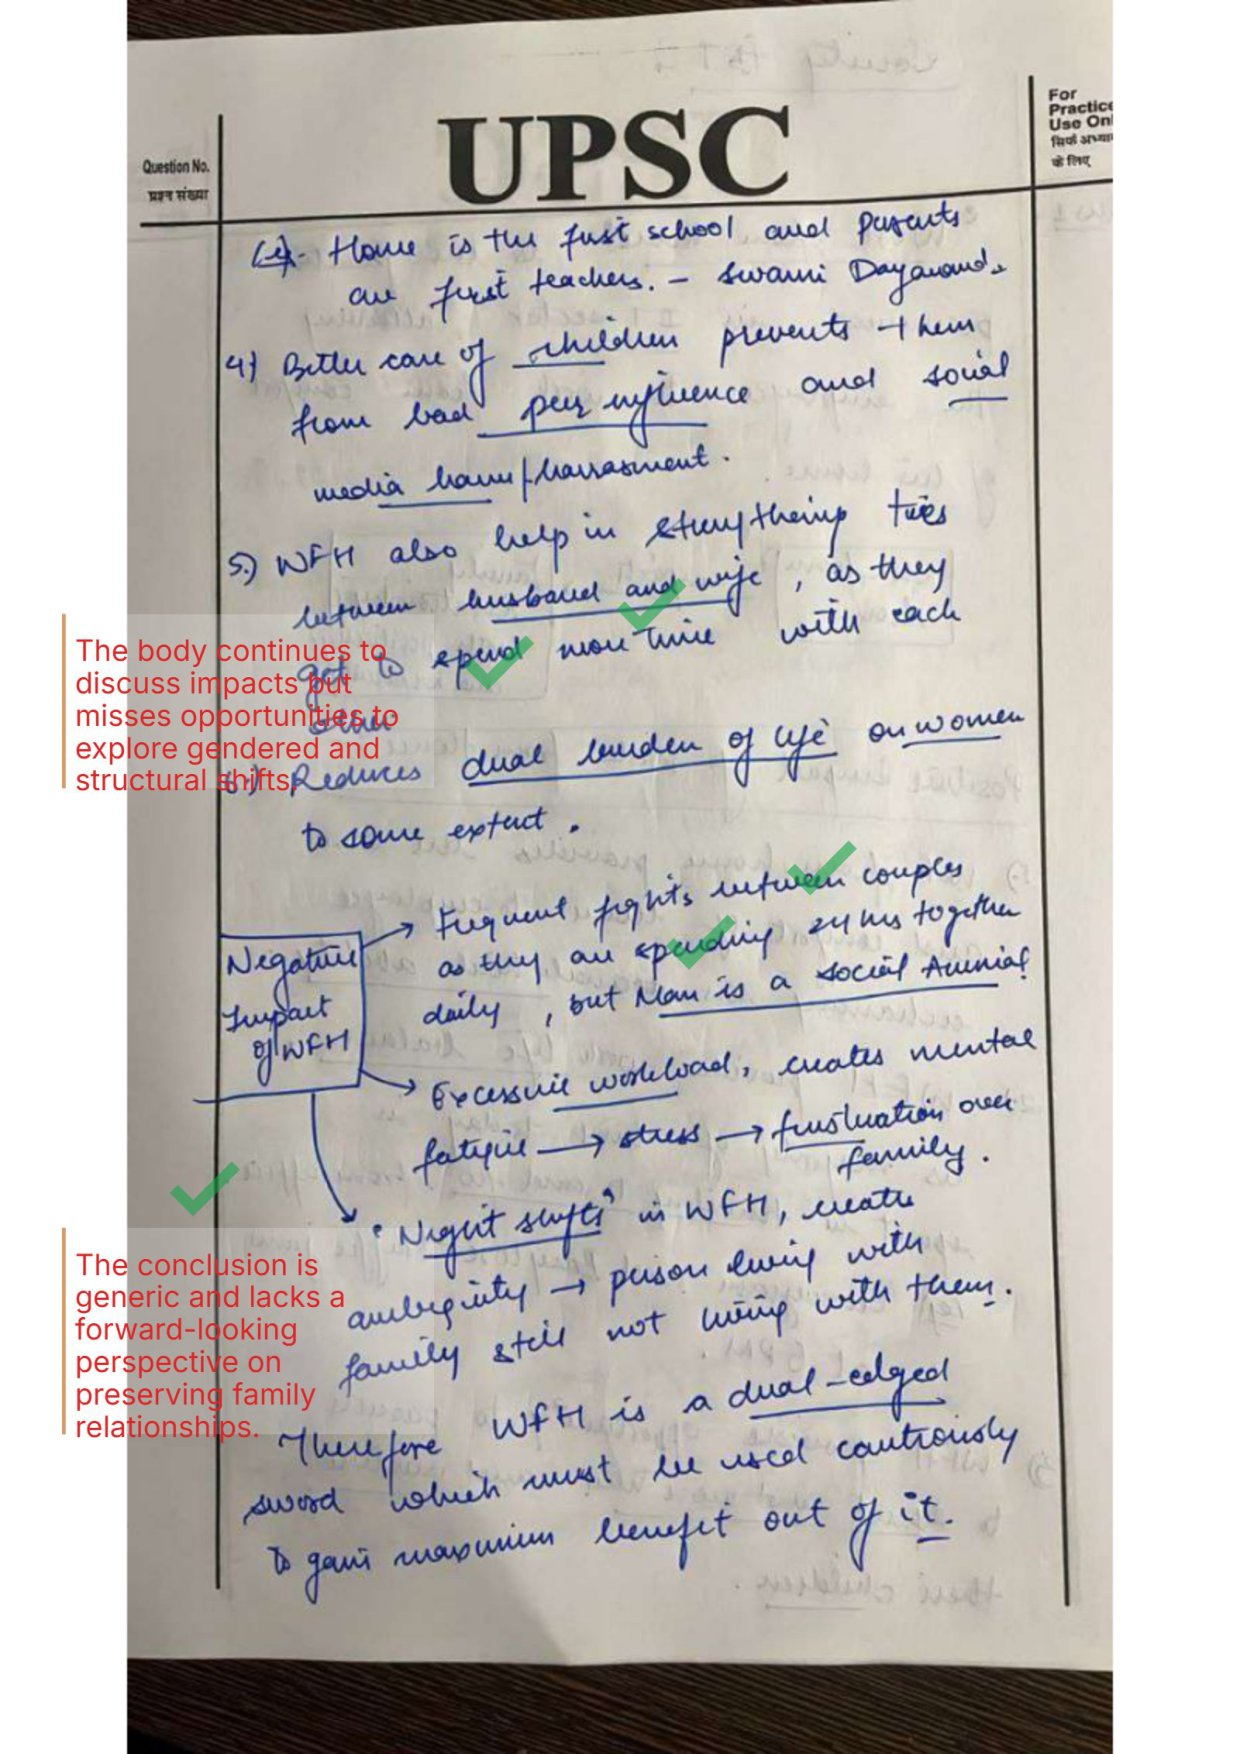 UPSC
Question No.
प्रश्न संख्या
For
Practice
Use Onl
सिर्फ अभ्या
के लिए
Eg.- Home is the first school and Parents
are first teachers. - Swami Dayanand.
4) Better care of children prevents them
from bad peer influence and social
media harm/harrasment.
5.) WFH also help in strengtheing ties
between husband and wife, as they
get to spend more time with each
other
6.) Reduces dual burden of life on women
to some extent.
The body continues to
discuss impacts but
misses opportunities to
explore gendered and
structural shifts.
Negative
Impact
of WFH
→ Frequent fights between couples
as they are spending 24 hrs together
daily, but Man is a social Animal
→ Excessive workload, creates mental
fatigue → stress → frustration over
family.
"Night shifts" in WFH, create
ambiguity → person living with
family still not living with them.
The conclusion is
generic and lacks a
forward-looking
perspective on
preserving family
relationships.
Therefore WFH is a dual-edged
sword which must be used cautiously
to gain maximum benefit out of it.